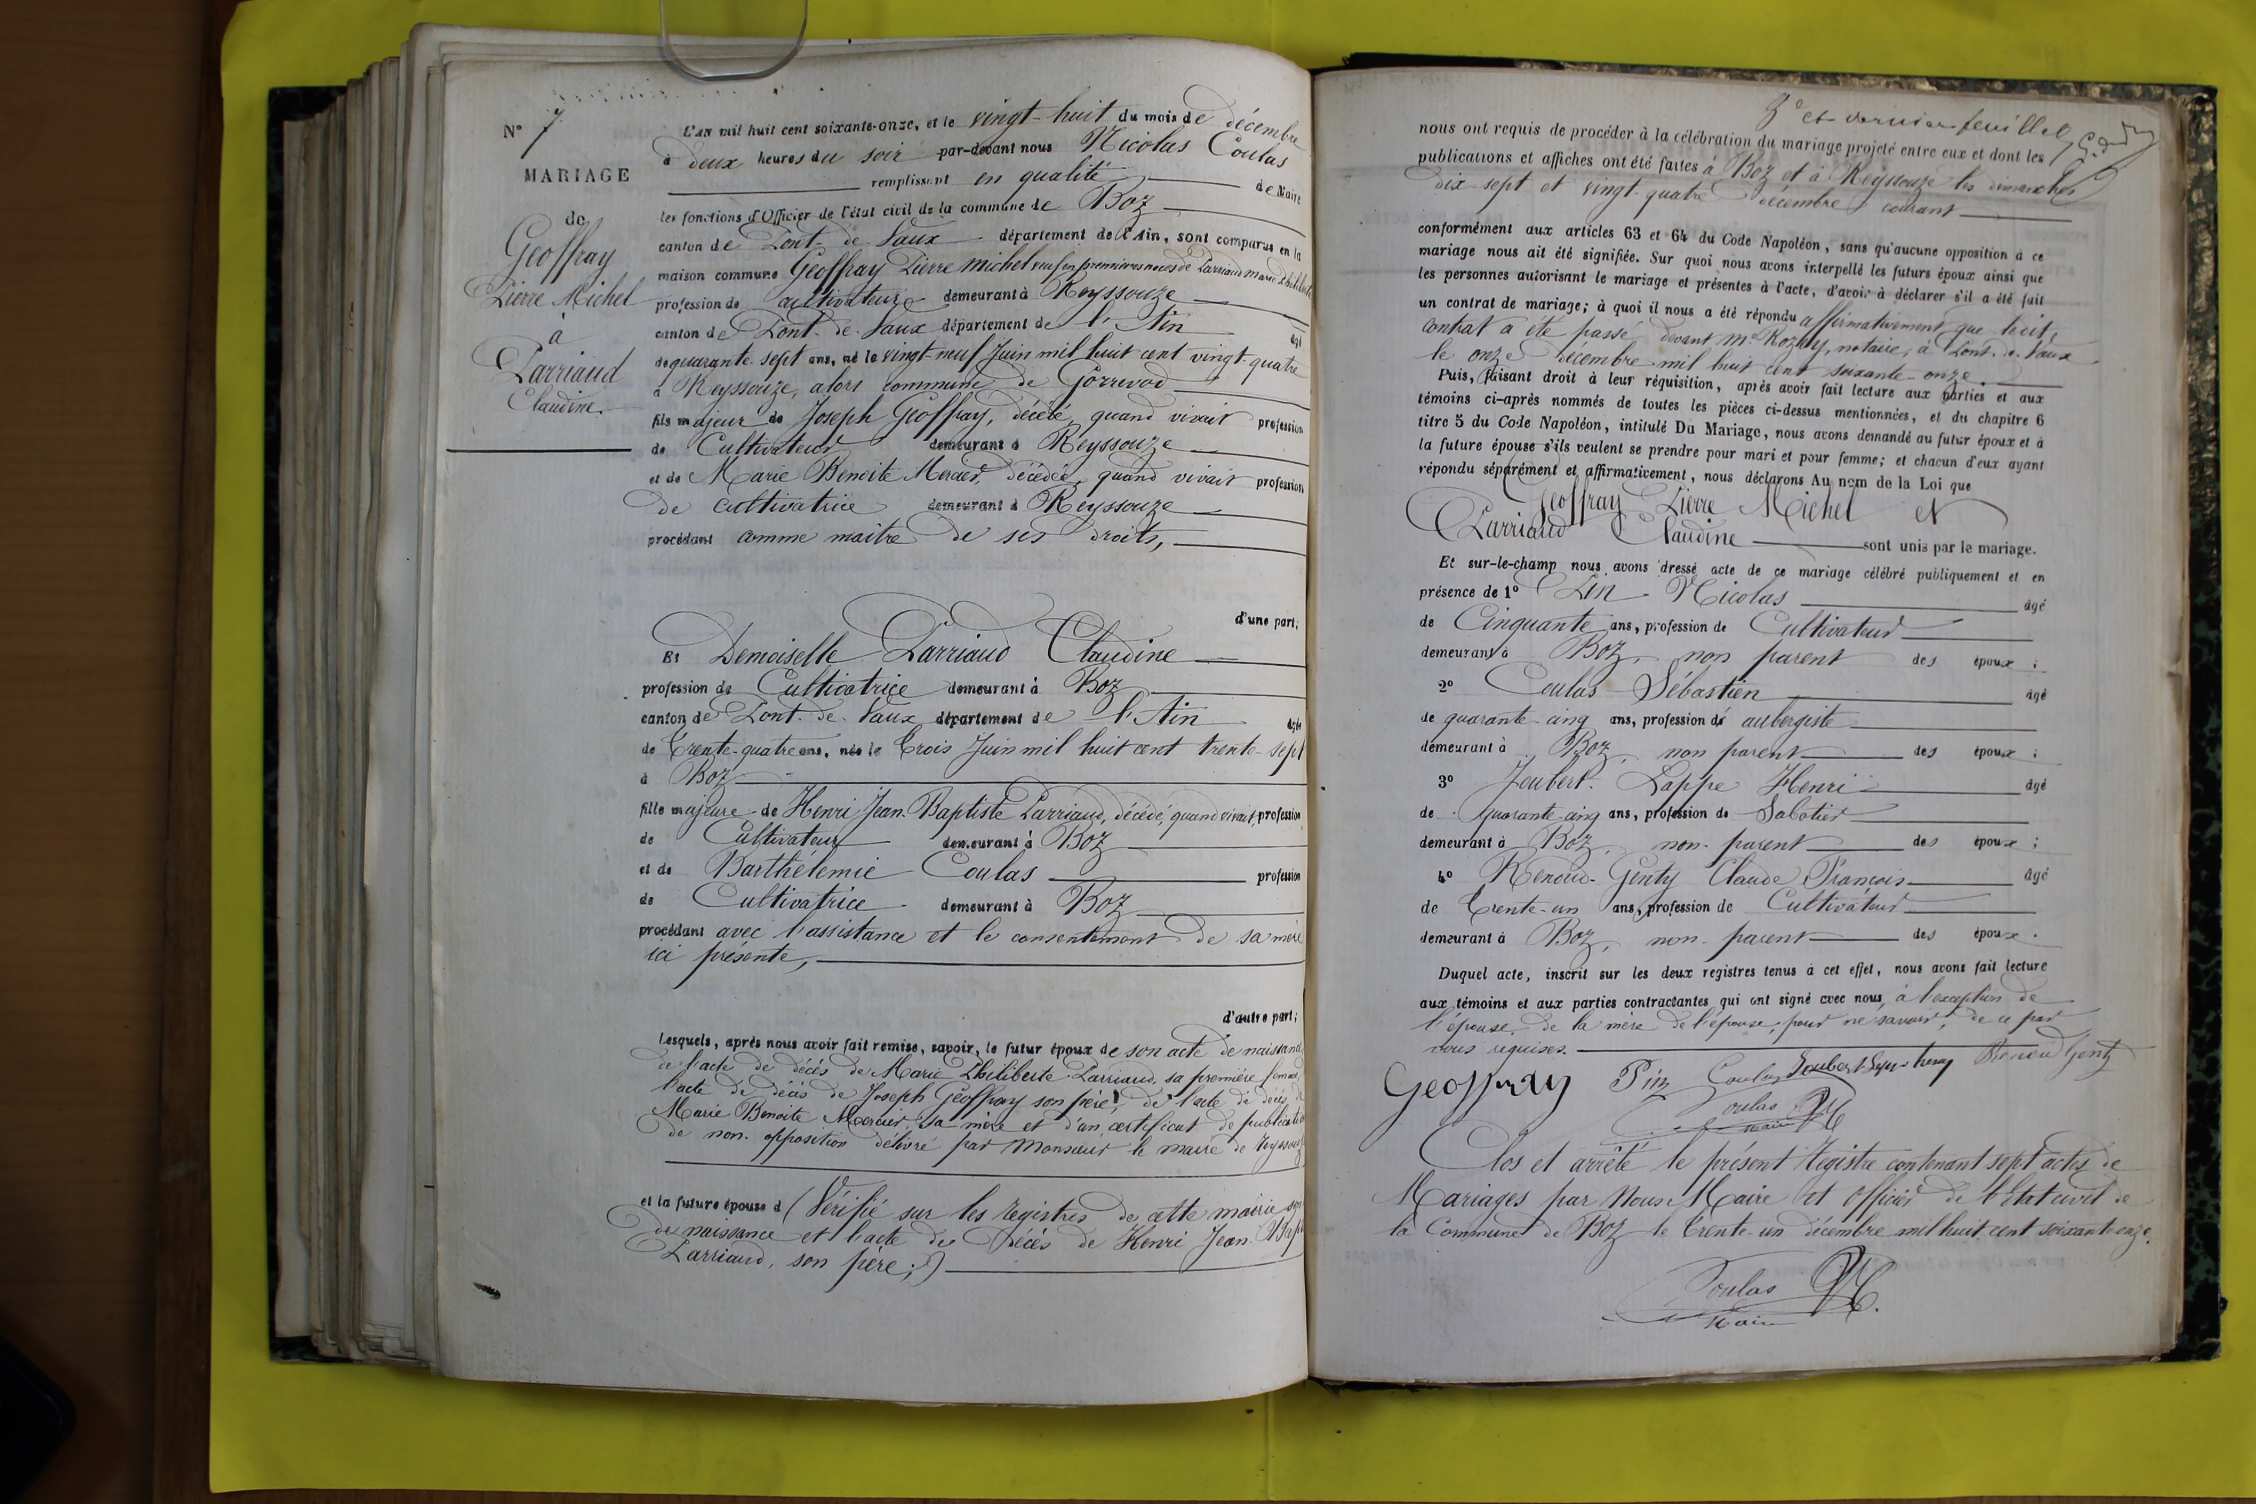 N° 7
MARIAGE
de
Geoffray
Pierre Michel
à
Parriaud
Claudine.
L'AN mil huit cent soixante-onze, et le vingt-huit du mois de décembre
à deux heures du soir par-devant nous Nicolas Coulas
remplissant en qualité de Maire
les fonctions d'Officier de l'état civil de la commune de Boz
canton de Pont-de-Vaux département de l'Ain, sont comparus en la
maison commune Geoffray Pierre Michel veuf en premières noces de Parriaud Marie Philiberte
profession de cultivateur demeurant à Reyssouze
canton de Pont-de-Vaux département de l'Ain âgé
de quarante-sept ans, né le vingt-neuf Juin mil huit cent vingt-quatre
à Reyssouze, alors commune de Gorrevod
fils majeur de Joseph Geoffray, décédé, quand vivait profession
de Cultivateur demeurant à Reyssouze
et de Marie Benoite Mercier, décédée, quand vivait profession
de cultivatrice demeurant à Reyssouze
procédant comme maitre de ses droits,
d'une part;
Et Demoiselle Parriaud Claudine
profession de Cultivatrice demeurant à Boz
canton de Pont-de-Vaux département de l'Ain âgée
de Trente-quatre ans, née le Trois Juin mil huit cent trente-sept
à Boz
fille majeure de Henri Jean-Baptiste Parriaud, décédé, quand vivait, profession
de Cultivateur demeurant à Boz
et de Barthélemie Coulas profession
de Cultivatrice demeurant à Boz
procédant avec l'assistance et le consentement de sa mère
ici présente,
d'autre part;
Lesquels, après nous avoir fait remise, savoir, le futur époux de son acte de naissance
de l'acte de décès de Marie Philiberte Parriaud, sa première femme,
l'acte de décès de Joseph Geoffray son père, de l'acte de décès de
Marie Benoite Mercier, sa mère et d'un certificat de publication
de non-opposition délivré par Monsieur le maire de Reyssouze
et la future épouse d (Vérifié sur les registres de cette mairie son
de naissance et l'acte de Décès de Henri Jean-Bapt
Parriaud, son père;)
3e et dernier feuillet
nous ont requis de procéder à la célébration du mariage projeté entre eux et dont les
publications et affiches ont été faites à Boz et à Reyssouze les dimanches
dix-sept et vingt-quatre décembre courant
conformément aux articles 63 et 64 du Code Napoléon, sans qu'aucune opposition à ce
mariage nous ait été signifiée. Sur quoi nous avons interpellé les futurs époux ainsi que
les personnes autorisant le mariage et présentes à l'acte, d'avoir à déclarer s'il a été fait
un contrat de mariage; à quoi il nous a été répondu affirmativement que ledit
contrat a été passé devant Me Rozay, notaire, à Pont-de-Vaux
le onze décembre mil huit cent soixante-onze.
Puis, faisant droit à leur réquisition, après avoir fait lecture aux parties et aux
témoins ci-après nommés de toutes les pièces ci-dessus mentionnées, et du chapitre 6
titre 5 du Code Napoléon, intitulé Du Mariage, nous avons demandé au futur époux et à
la future épouse s'ils veulent se prendre pour mari et pour femme; et chacun d'eux ayant
répondu séparément et affirmativement, nous déclarons Au nom de la Loi que
Geoffray Pierre Michel et
Parriaud Claudine sont unis par le mariage.
Et sur-le-champ nous avons dressé acte de ce mariage célébré publiquement et en
présence de 1° Pin Nicolas âgé
de Cinquante ans, profession de Cultivateur
demeurant à Boz, non parent des époux;
2° Coulas Sébastien âgé
de quarante-cinq ans, profession de aubergiste
demeurant à Boz, non parent des époux;
3° Joubert-Lappe Henri âgé
de quarante-cinq ans, profession de Sabotier
demeurant à Boz, non-parent des époux;
4° Renoud-Genty Claude François âgé
de Trente-un ans, profession de Cultivateur
demeurant à Boz, non-parent des époux.
Duquel acte, inscrit sur les deux registres tenus à cet effet, nous avons fait lecture
aux témoins et aux parties contractantes qui ont signé avec nous, à l'exception de
l'épouse, de la mère de l'épouse, pour ne savoir, de ce par
nous requises.
Geoffray Pin Coulas Joubert Renoud Genty
Coulas
Maire
Clos et arrêté le présent Registre contenant sept actes de
Mariages par Nous Maire et officier de l'état civil de
la Commune de Boz le Trente-un décembre mil huit cent soixante-onze.
Coulas
Maire